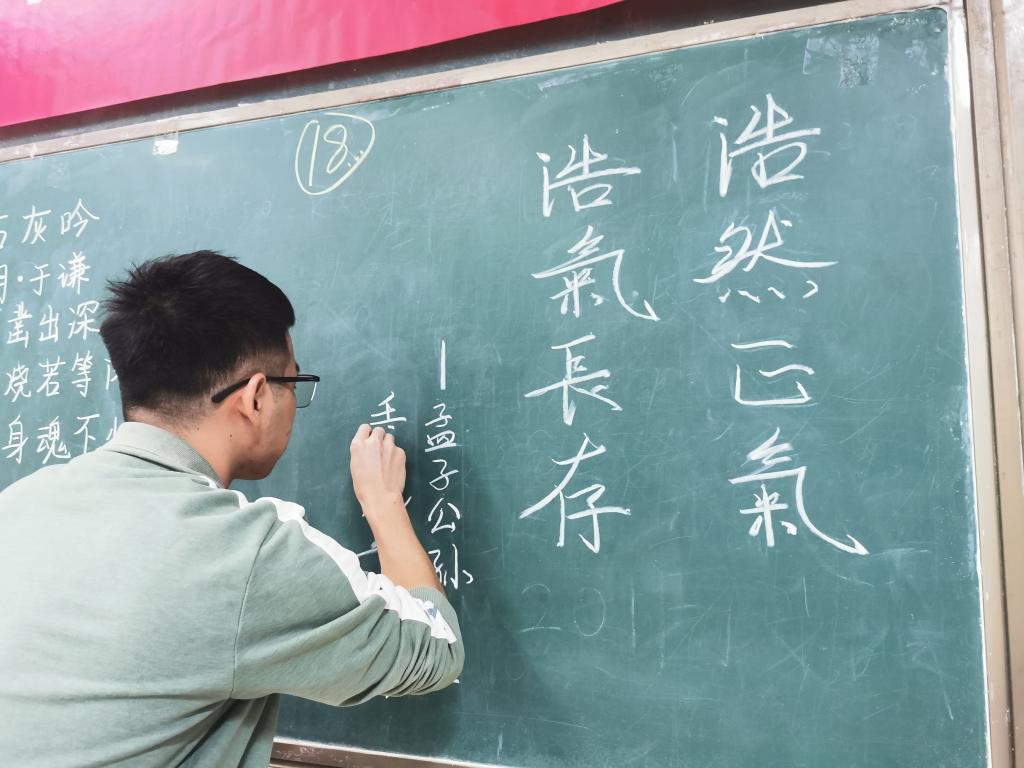 浩然正氣
浩氣長存
孟子公孙
18
石灰吟
明·于谦
凿出深
烧若等
身魂不